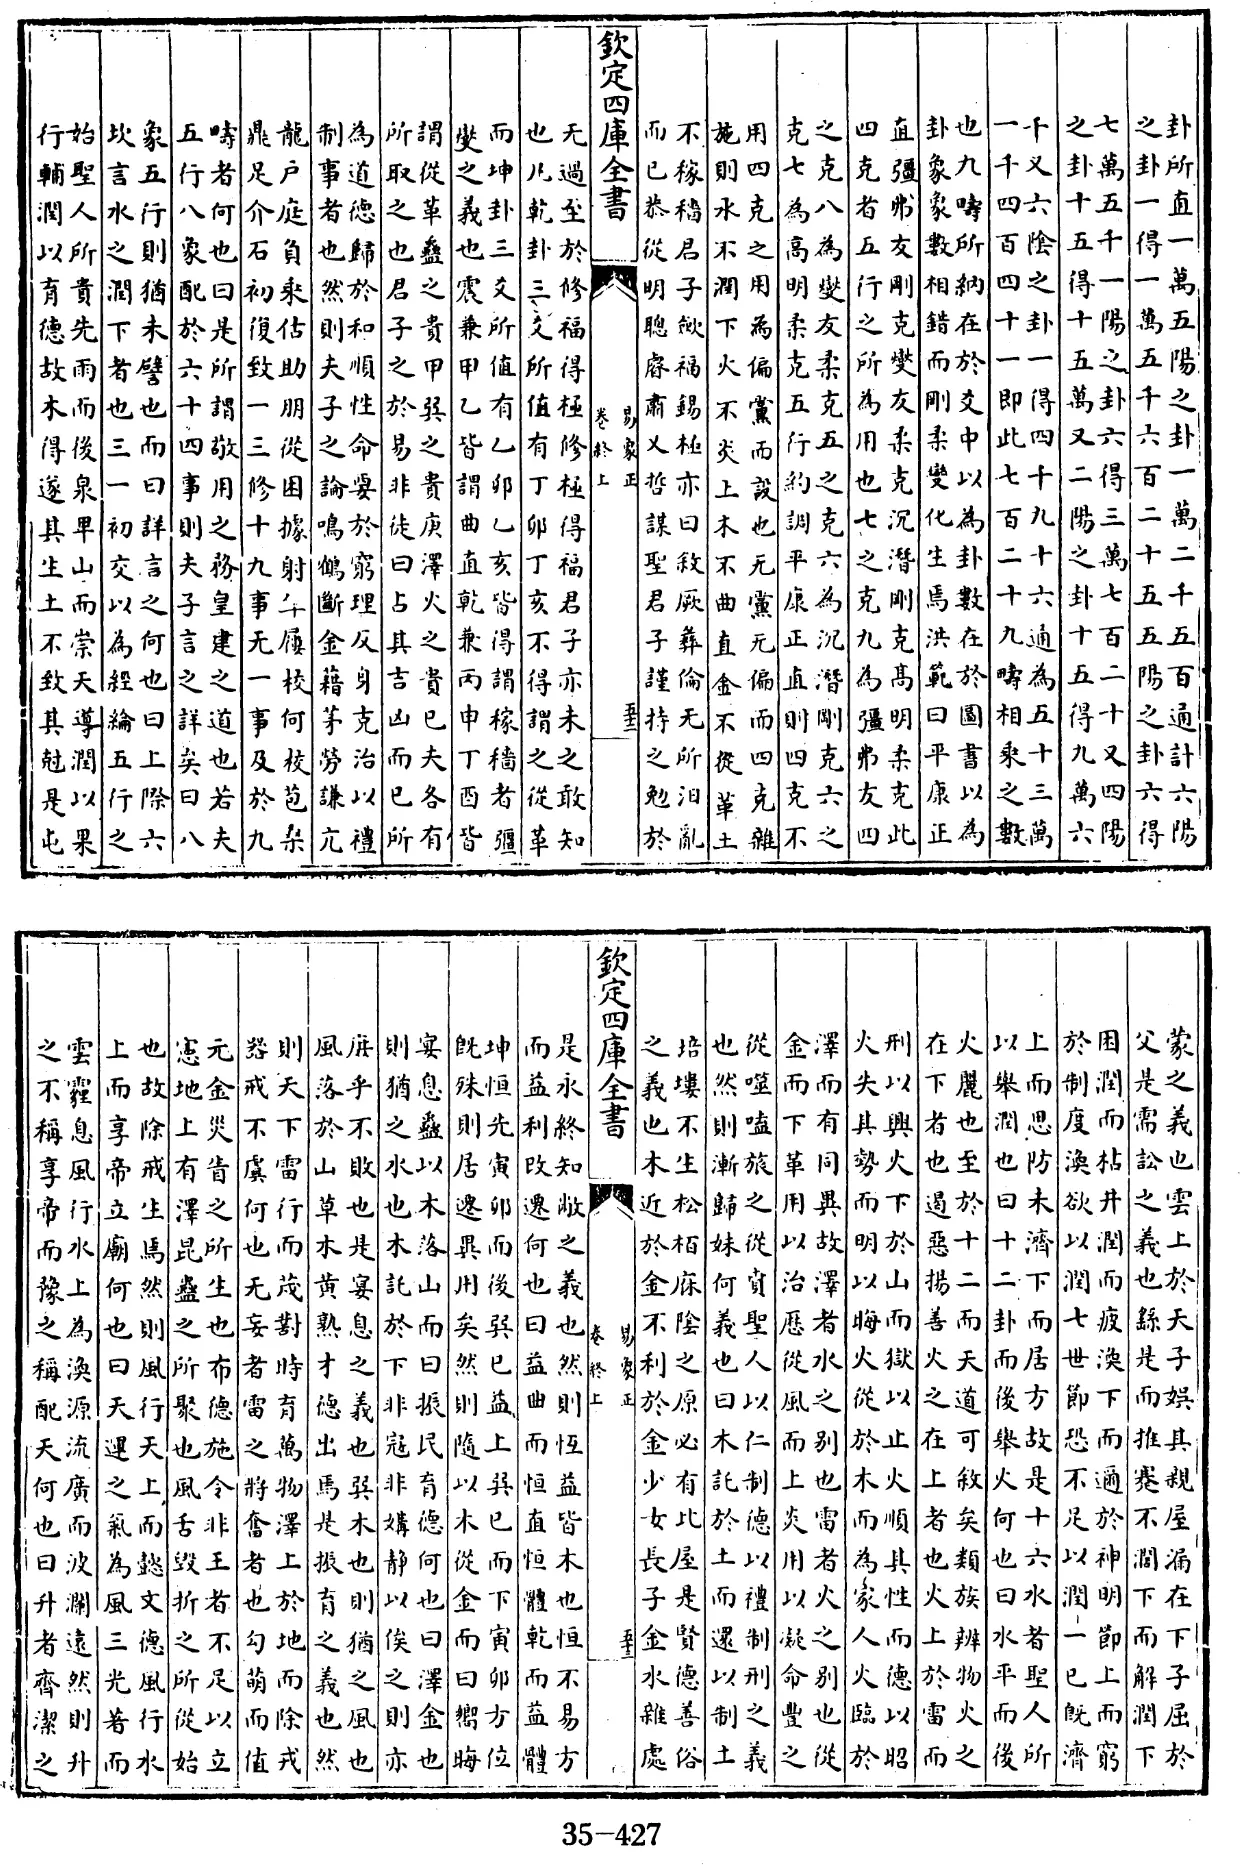 卦所直一萬五陽之卦一萬二千五百通計六陽
之卦一得一萬五千六百二十五五陽之卦六得
七萬五千一陽之卦六得三萬七百二十又四陽
之卦十五得十五萬又二陽之卦十五得九萬六
千又六陰之卦一得四十九十六通為五十三萬
一千四百四十一即此七百二十九疇相乘之數
也九疇所納在於爻中以為卦數在於圖書以為
卦象象數相錯而剛柔變化生焉洪範曰平康正
直彊弗友剛克燮友柔克沉潛剛克髙明柔克此
四克者五行之所為用也七之克九為彊弗友四
之克八為燮友柔克五之克六為沉潛剛克六之
克七為高明柔克五行約調平康正直則四克不
用四克之用為偏黨而設也无黨无偏而四克雜
施則水不潤下火不炎上木不曲直金不從革土
不稼穡君子斂福錫極亦曰敘厥彝倫无所汨亂
而已恭從明聰睿肅乂哲謀聖君子謹持之勉於
欽定四庫全書
易象正
卷終上
无過至於修福得極修極得福君子亦未之敢知
也凡乾卦三爻所值有丁卯丁亥不得謂之從革
而坤卦三爻所值有乙卯乙亥皆得謂稼穡者彊
燮之義也震兼甲乙皆謂曲直乾兼丙申丁酉皆
謂從革蠱之貴甲巽之貴庚澤火之貴巳夫各有
所取之也君子之於易非徒曰占其吉凶而已所
為道德歸於和順性命要於窮理反身克治以禮
制事者也然則夫子之論鳴鶴斷金藉茅勞謙亢
龍户庭負乘估助朋從困據射隼屨校何校苞桑
鼎足介石初復致一三修十九事无一事及於九
疇者何也曰是所謂敬用之務皇建之道也若夫
五行八象配於六十四事則夫子言之詳矣曰八
象五行則猶未譬也而曰詳言之何也曰上際六
坎言水之潤下者也三一初交以為經綸五行之
始聖人所貴先雨而後泉畢山而崇天導潤以果
行輔潤以育德故木得遂其生土不致其尅是屯
蒙之義也雲上於天子娛其親屋漏在下子屈於
父是需訟之義也繇是而推蹇不潤下而解潤下
困潤而枯井潤而疲渙下而適於神明節上而窮
於制度渙欲以潤七世節恐不足以潤一己既濟
上而思防未濟下而居方故是十六水者聖人所
以舉潤也曰十二卦而後舉火何也曰水平而後
火麗也至於十二而天道可敘矣類族辨物火之
在下者也遏惡揚善火之在上者也火上於雷而
刑以興火下於山而獄以止火順其性而德以昭
火失其勢而明以晦火從於木而為家人火臨於
澤而有同異故澤者水之别也雷者火之别也從
金而下革用以治歷從風而上炎用以凝命豐之
從噬嗑旅之從賁聖人以仁制德以禮制刑之義
也然則漸歸妹何義也曰木託於土而還以制土
培塿不生松栢庥陰之原必有比屋是賢德善俗
之義也木近於金不利於金少女長子金水雜處
欽定四庫全書
易象正
卷終上
是永終知敝之義也然則恆益皆木也恒不易方
而益利改遷何也曰益曲而恒直恒體乾而益體
坤恒先寅卯而後巽巳益上巽巳而下寅卯方位
既殊則居遷異用矣然則隨以木從金而曰嚮晦
宴息蠱以木落山而曰振民育德何也曰澤金也
則猶之水也木託於下非冦非媾静以俟之則亦
庥乎不敗也是宴息之義也巽木也則猶之風也
風落於山草木黄熟才德出焉是振育之義也然
則天下雷行而茂對時育萬物澤上於地而除戎
器戒不虞何也无妄者雷之將奮者也勾萌而值
元金災眚之所生也布德施令非王者不足以立
憲地上有澤昆蟲之所聚也風舌毀折之所從始
也故除戒生焉然則風行天上而懿文德風行水
上而享帝立廟何也曰天運之氣為風三光著而
雲霾息風行水上為渙源流廣而波瀾遠然則升
之不稱享帝而豫之稱配天何也曰升者齊潔之
35—427